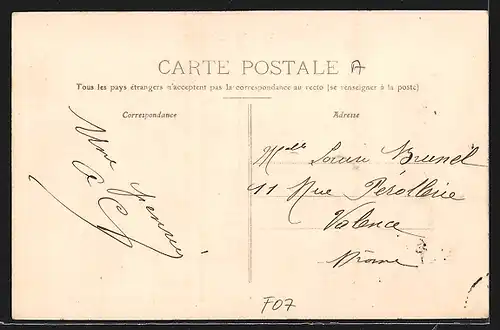 CARTE POSTALE A
Tous les pays étrangers n'acceptent pas la correspondance au recto (se renseigner à la poste)
Correspondance
Adresse
Une pensée
Melle Brunel
11 Rue Pérollerie
Valence
Drome
F07